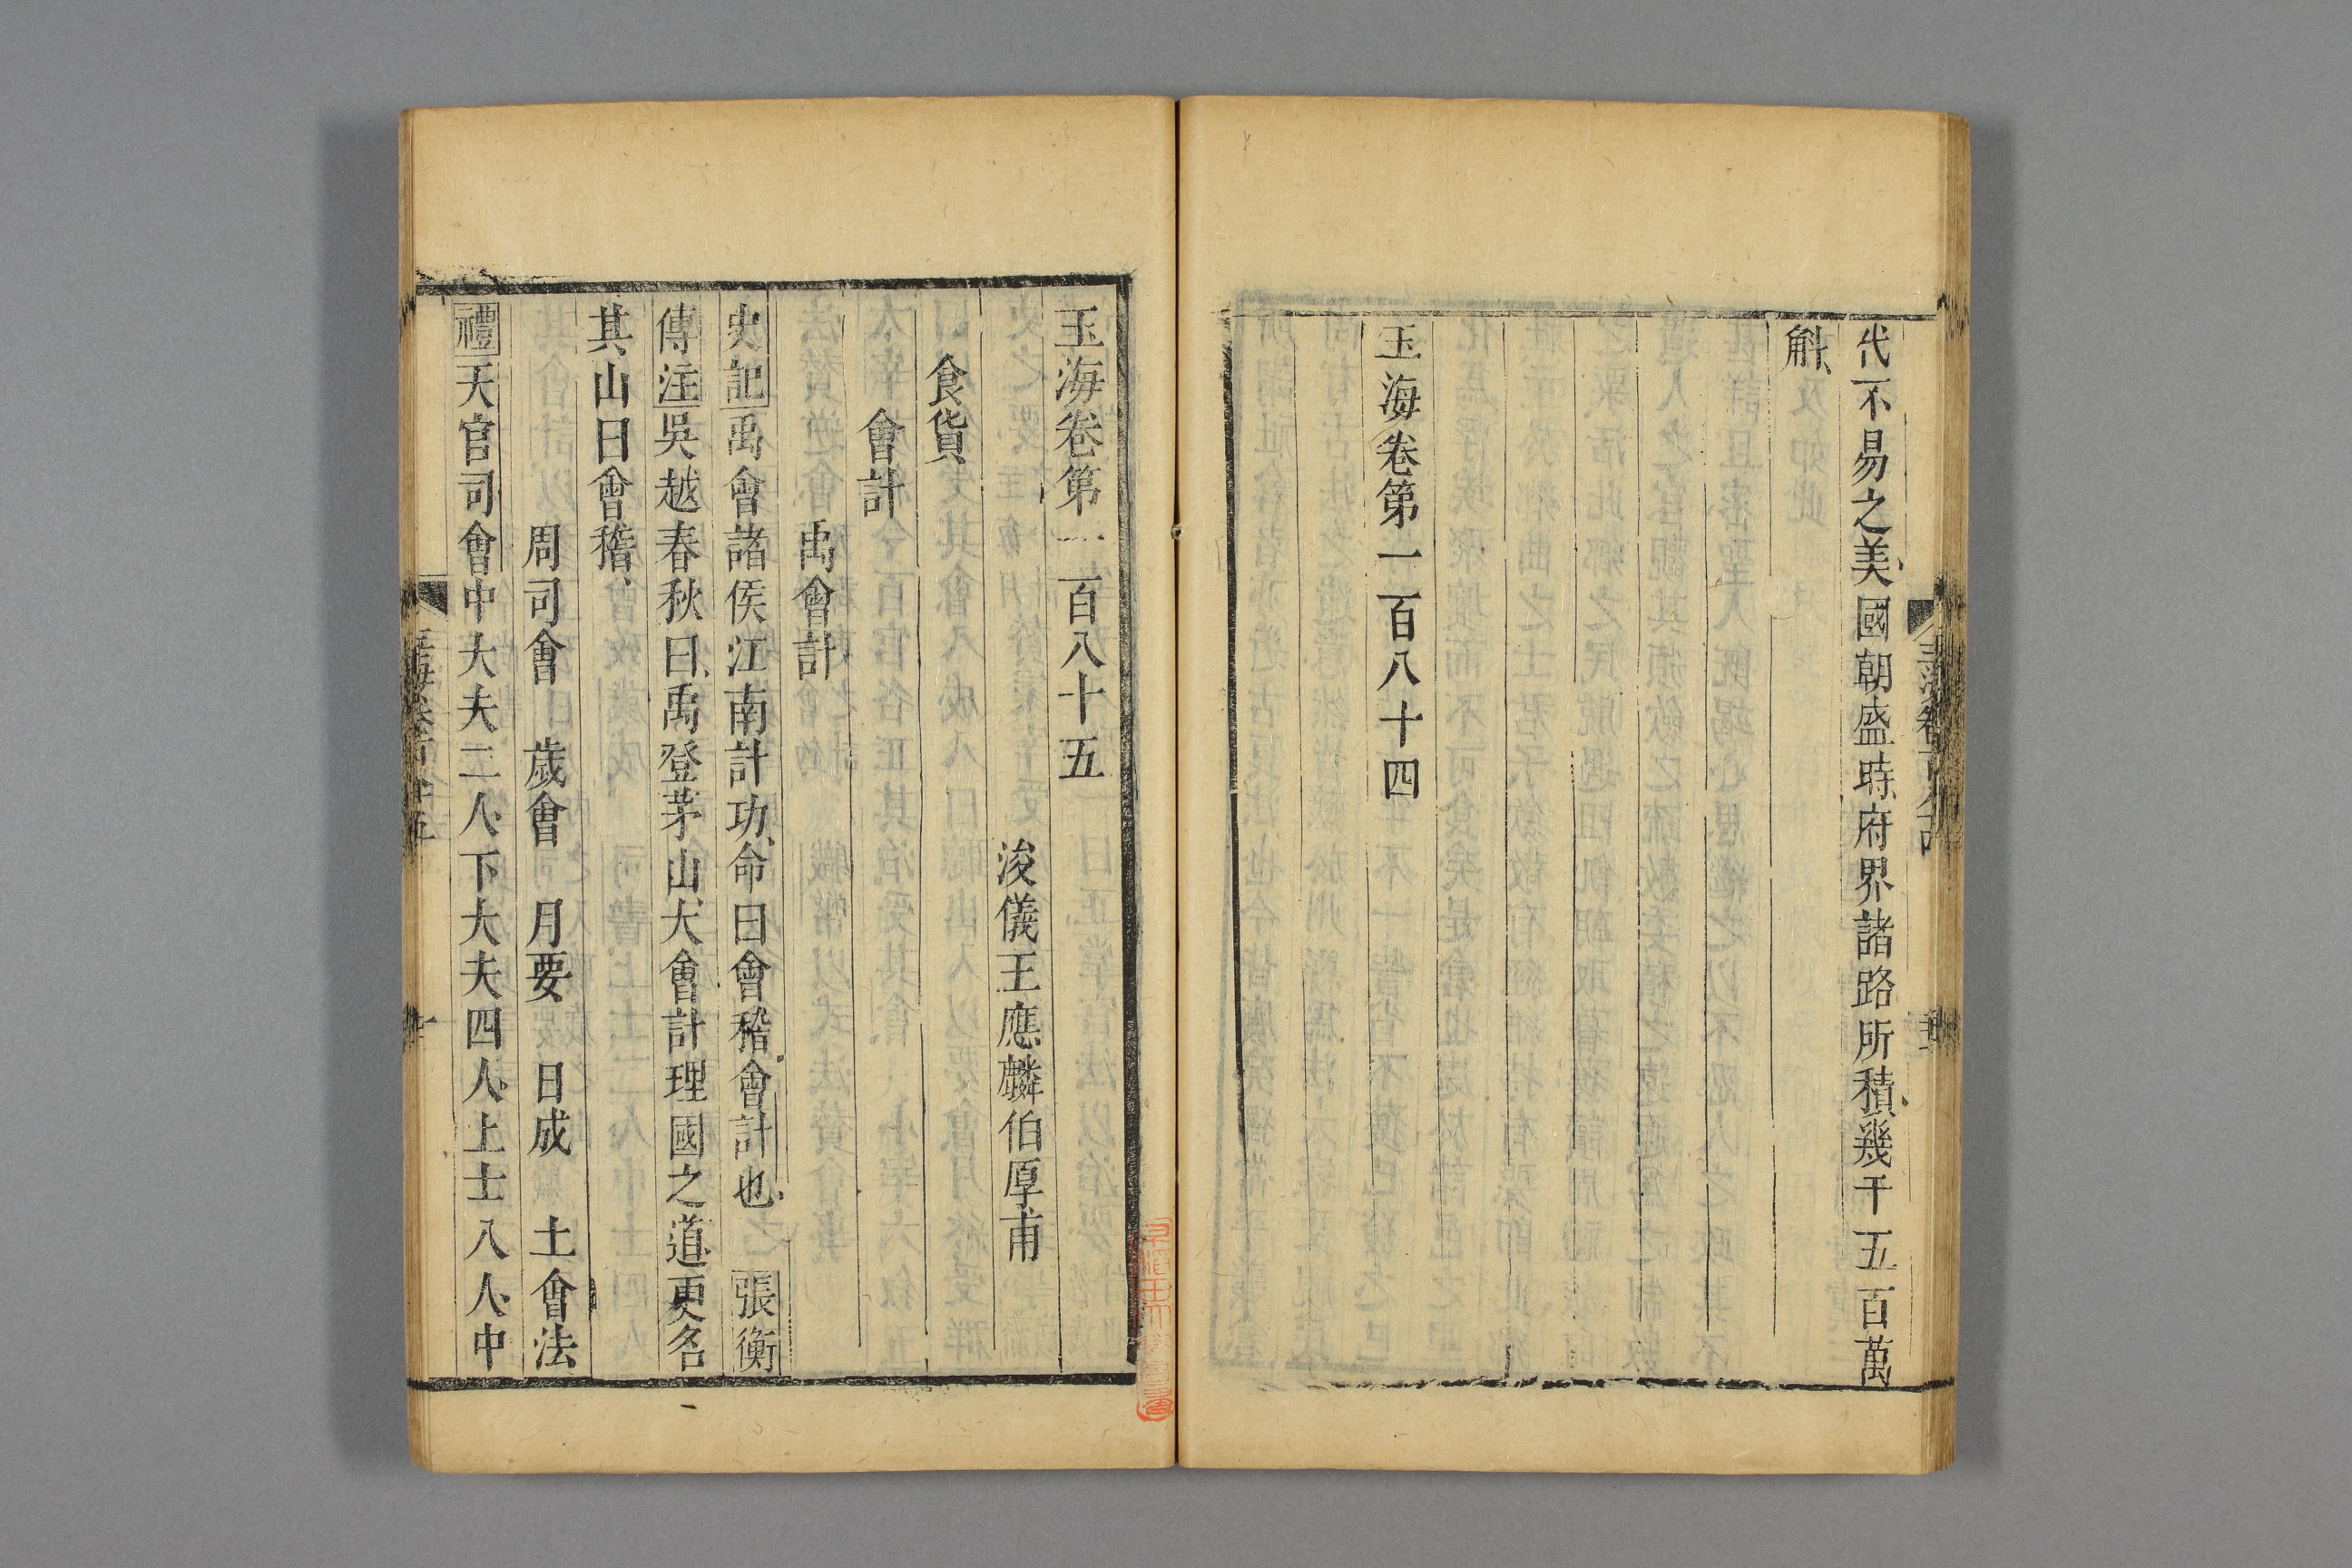 代不易之美國朝盛時府界諸路所積幾千五百萬
斛
玉海卷第一百八十四
玉海卷第一百八十五
浚儀王應麟伯厚甫
食貨
會計
禹會計
史記禹會諸侯江南計功命曰會稽會計也 張衡
傳注吳越春秋曰禹登茅山大會計理國之道更名
其山曰會稽
周司會 歲會 月要 日成 土會法
禮天官司會中大夫二人下大夫四人上士八人中
玉海卷百八十五